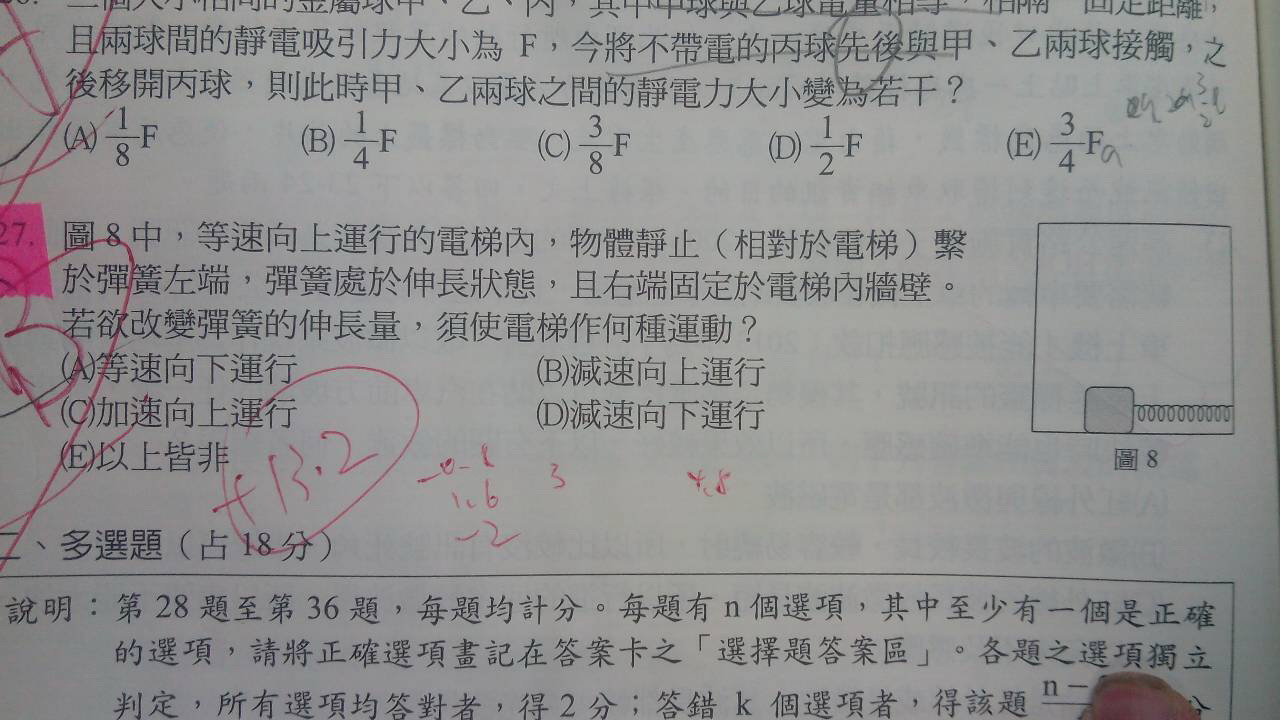 三個大小相同的金屬球甲、乙、丙，其中甲球與乙球電量相等，相隔一固定距離，
且兩球間的靜電吸引力大小為 F，今將不帶電的丙球先後與甲、乙兩球接觸，之
後移開丙球，則此時甲、乙兩球之間的靜電力大小變為若干？
(A) 1/8 F (B) 1/4 F (C) 3/8 F (D) 1/2 F (E) 3/4 F
27. 圖 8 中，等速向上運行的電梯內，物體靜止（相對於電梯）繫
於彈簧左端，彈簧處於伸長狀態，且右端固定於電梯內牆壁。
若欲改變彈簧的伸長量，須使電梯作何種運動？
(A)等速向下運行 (B)減速向上運行
(C)加速向上運行 (D)減速向下運行
(E)以上皆非
圖 8
+13.2
-0.8 3 4.8
1.6
-2
二、多選題（占 18 分）
說明：第 28 題至第 36 題，每題均計分。每題有 n 個選項，其中至少有一個是正確
的選項，請將正確選項畫記在答案卡之「選擇題答案區」。各題之選項獨立
判定，所有選項均答對者，得 2 分；答錯 k 個選項者，得該題 n－ 分